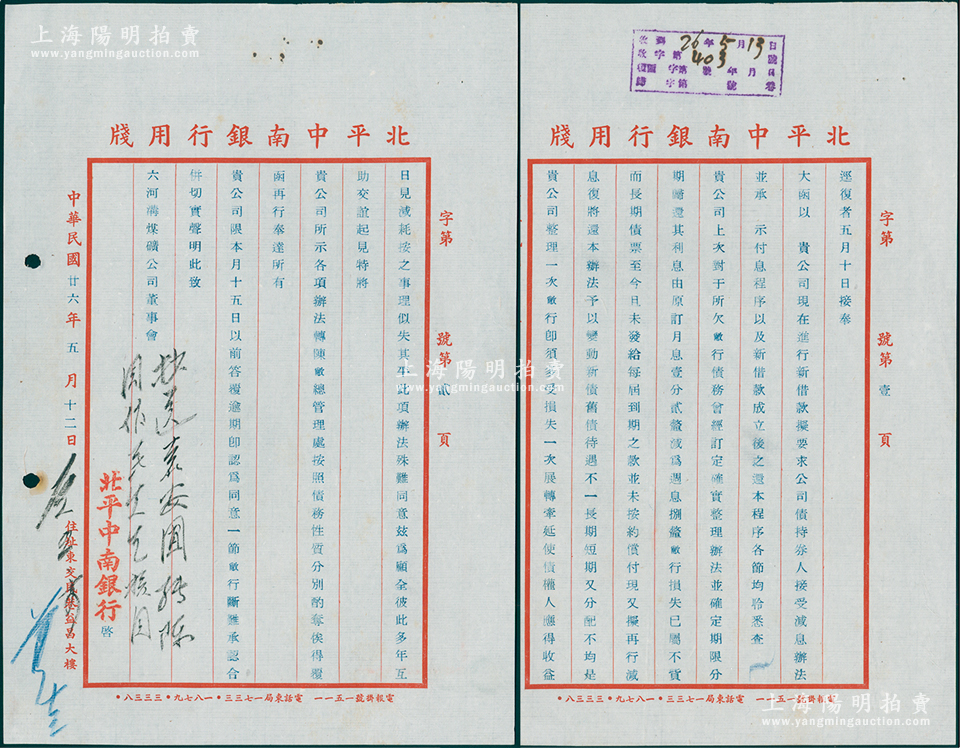 北平中南銀行用牋
字第 號第壹頁
逕復者五月十日接奉
大函以 貴公司現在進行新借款擬要求公司債持券人接受減息辦法
並承 示付息程序以及新借款成立後之還本程序各節均聆悉查
貴公司上次對于所欠敝行債務會經訂定確實整理辦法並確定期限分
期繪還其利息由原訂月息壹分貳釐減爲週息捌釐敝行損失已屬不貲
而長期債票至今日未發給每屆到期之款並未按約償付現又擬再行減
息復將還本辦法予以變動新債舊債待遇不一長期短期又分配不均是
貴公司整理一次敝行卽須多受損失一次展轉牽延使債權人應得收益
電報掛號一五一一 電話東局一七三三・一八七九・三三三八・
收到 26年5月13日
收字第403號
上海陽明拍賣
www.yangmingauction.com
北平中南銀行用牋
字第 號第貳頁
日見減耗按之事理似失其平此項辦法殊難同意茲爲顧全彼此多年互
助交誼起見特將
貴公司所示各項辦法轉陳敝總管理處按照債務性質分別酌奪俟得覆
函再行奉達所有
貴公司限本月十五日以前答覆逾期卽認爲同意一節敝行斷難承認合
併切實聲明此致
六河溝煤礦公司董事會
北平中南銀行啓
中華民國廿六年五月十二日
住址東交民巷益昌大樓
電報掛號一五一一 電話東局一七三三・一八七九・三三三八・
上海陽明拍賣
www.yangmingauction.com